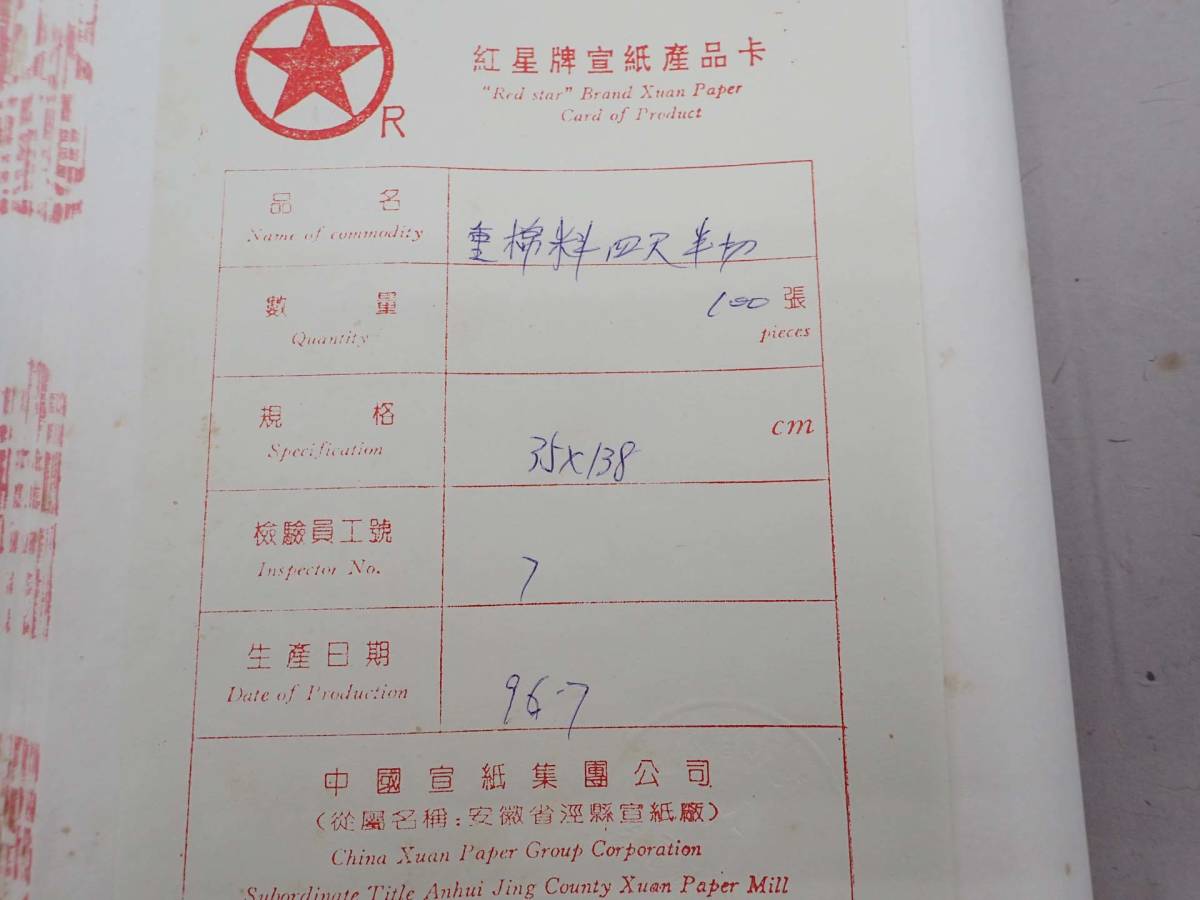 R
紅星牌宣紙產品卡
"Red star" Brand Xuan Paper
Card of Product
品 名
Name of commodity
重棉料四尺半切
數 量
Quantity
100 張
pieces
規 格
Specification
35×138
cm
檢驗員工號
Inspector No.
7
生產日期
Date of Production
96-7
中國宣紙集團公司
(從屬名稱:安徽省涇縣宣紙廠)
China Xuan Paper Group Corporation
Subordinate Title Anhui Jing County Xuan Paper Mill